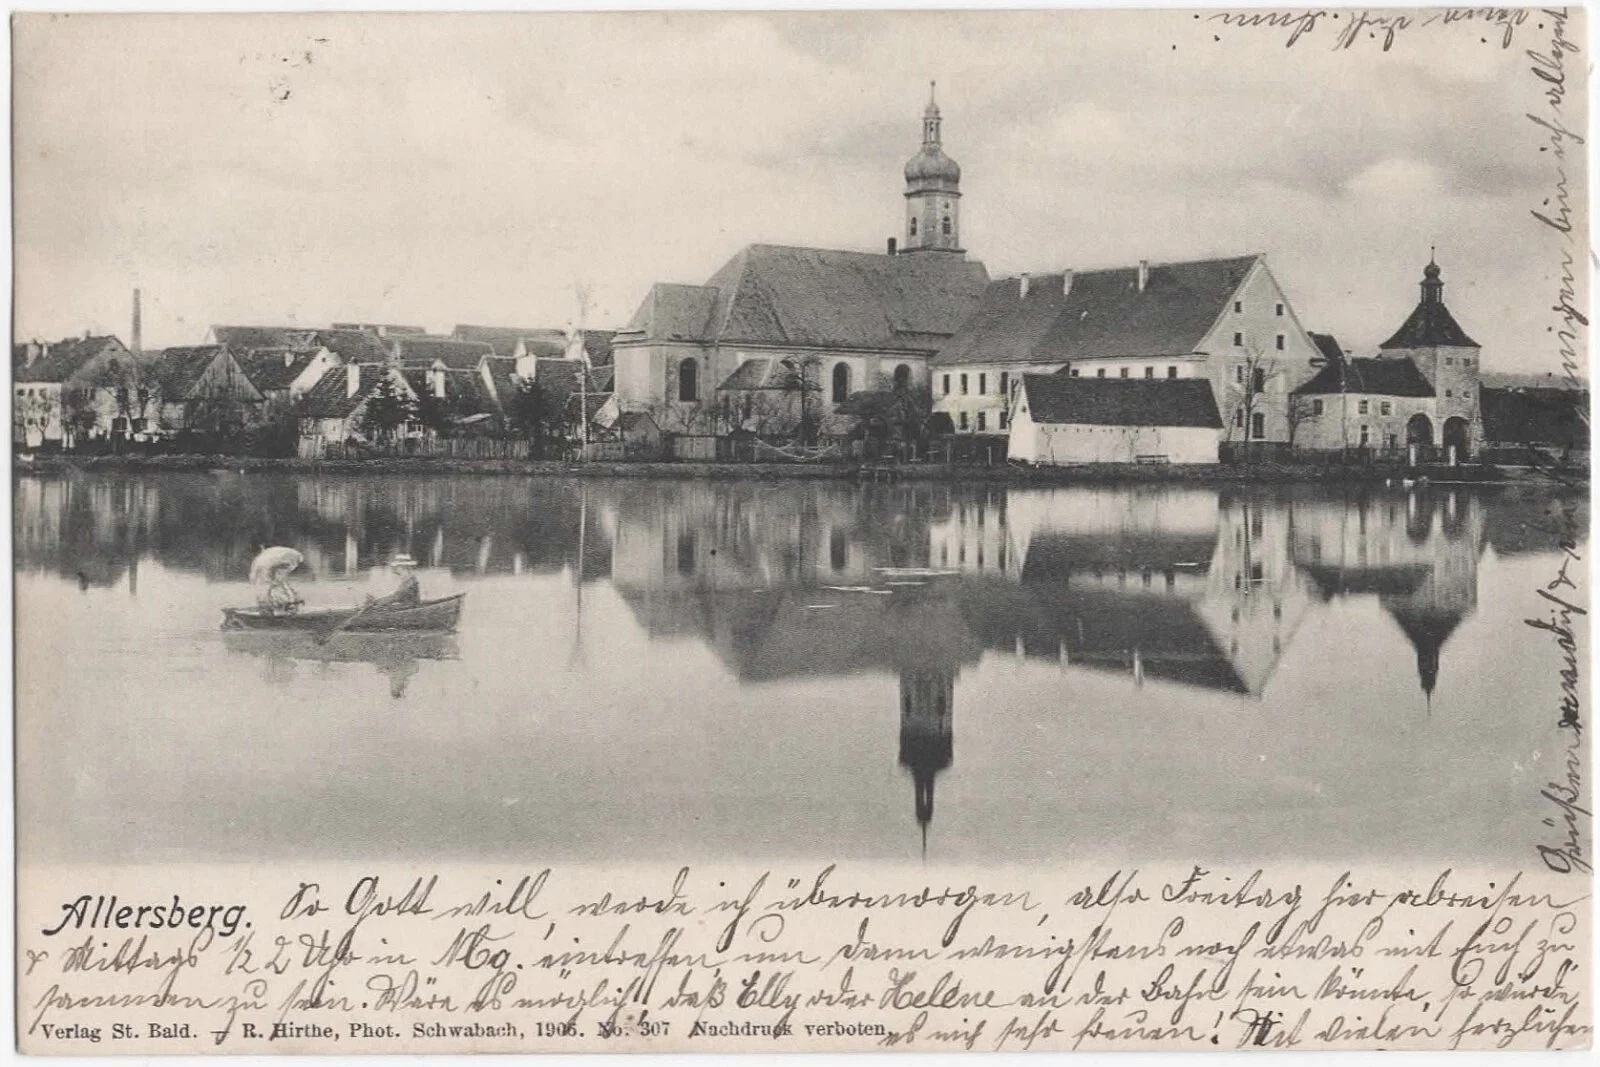 Allersberg.
So Gott will, werde ich übermorgen, also Freitag hier abreisen
& Mittags 1/2 2 Uhr in Mbg. eintreffen, um dann wenigstens noch etwas mit Euch zu
sammen zu sein. Wäre es möglich, daß Elly oder Helene an der Bahn sein könnte, so würde
es mich sehr freuen! Mit vielen herzlichen
Verlag St. Bald. – R. Hirthe, Phot. Schwabach, 1906. No. 307 Nachdruck verboten.
Grüßen an dich & die bin ich allezeit
deine Anni.